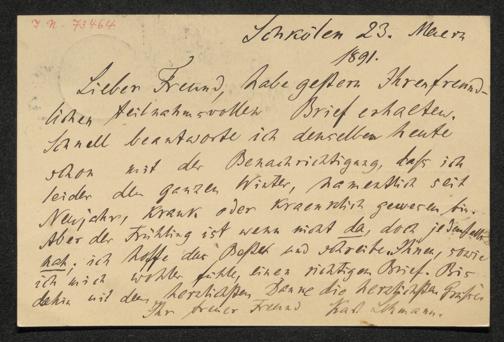 I. N. 73464
Schkölen 23. Maerz
1891.
Lieber Freund, habe gestern Ihren freund-
lichen teilnahmsvollen Brief erhalten.
Schnell beantworte ich denselben heute
schon mit der Benachrichtigung, daß ich
leider den ganzen Winter, namentlich seit
Neujahr, krank oder kraenklich gewesen bin.
Aber der Frühling ist wenn nicht da, doch jedenfalls
nah, ich hoffe das Beste und schreibe Ihnen, sowie
ich mich wohler fühle, einen richtigen Brief. Bis
dahin mit dem herzlichsten Danke die herzlichsten Grüße
Ihr treuer Freund Karl